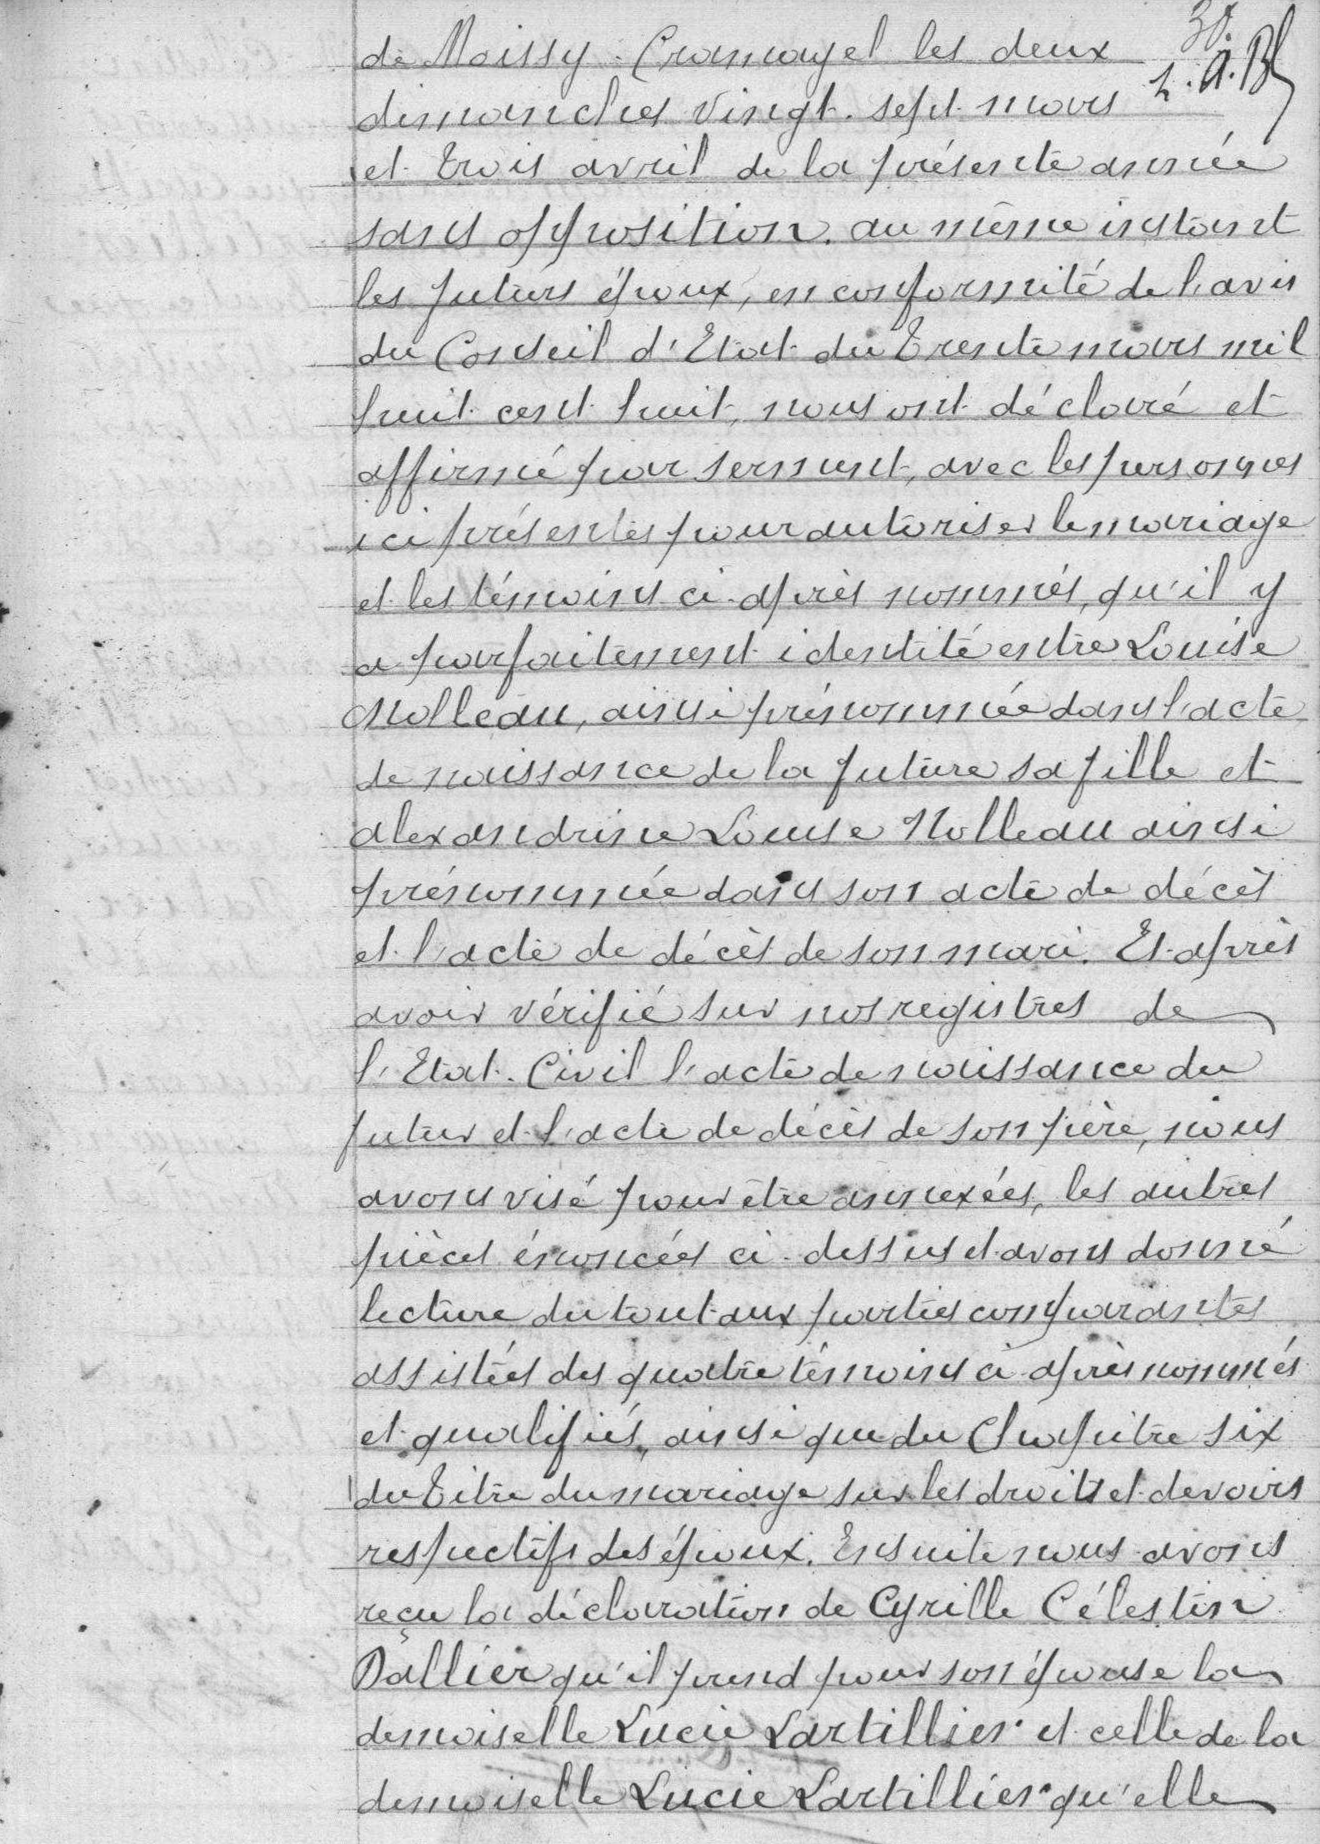 de Moissy-Cramayel les deux
dimanches vingt-sept mars
et trois avril de la présente année
sans opposition. au même instant
les futurs époux, en conformité de l'avis
du Conseil d'Etat du trente mars mil
huit cent huit, nous ont déclaré et
affirmé par serment, avec les personnes
ici présentes pour autoriser le mariage
et les témoins ci-après nommés, qu'il y
a parfaitement identité entre Louise
Nolleau, ainsi prénommée dans l'acte
de naissance de la future sa fille et
alexandrine Louise Nolleau ainsi
prénommée dans son acte de décès
et l'acte de décès de son mari. Et après
avoir vérifié sur nos registres de
l'Etat-Civil l'acte de naissance du
futur et l'acte de décès de son père, nous
avons visé pour être annexées, les autres
pièces énoncées ci-dessus et avons donné
lecture du tout aux parties comparantes
assistées des quatre témoins ci-après nommés
et qualifiés, ainsi que du Chapitre six
du titre du mariage sur les droits et devoirs
respectifs des époux. Ensuite nous avons
reçu la déclaration de Cyrille Célestin
Dallier qu'il prend pour son épouse la
demoiselle Lucie Lartillier et celle de la
demoiselle Lucie Lartillier qu'elle